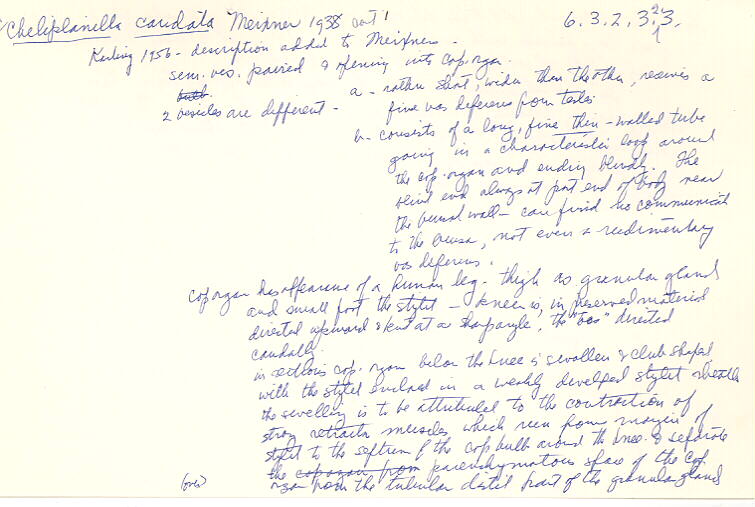 Cheliplanilla caudata Meixner 1938 cont' 6.3.2.3.3.
Karling 1956 - description added to Meixners -
sem. ves. paired & opening into cop. organ.
2 vesicles are different - a - rather short, wider than the other, receives a
fine vas deferens from testis
b - consists of a long, fine thin-walled tube
going in a characteristic loop around
the cop. organ and ending blindly. The
blind end always at post end of body near
the bursal wall - can find no communicat
to the bursa, not even a rudimentary
vas deferens.
cop organ has appearance of a human leg. thigh is granular gland
and small foot the stylet - knee is, in preserved material
directed upward & bent at a sharp angle, the "toes" directed
caudally.
in sections cop. organ below the knee is swollen & club shaped
with the stylet enclosed in a weakly developed stylet sheath
the swelling is to be attributed to the contraction of
strong retractor muscles which run from margin of
stylet to the septum of the cop bulb around the knee & separate
the cop organ from parenchymatous space of the cop.
organ from the tubular distal part of the granular gland
(over)